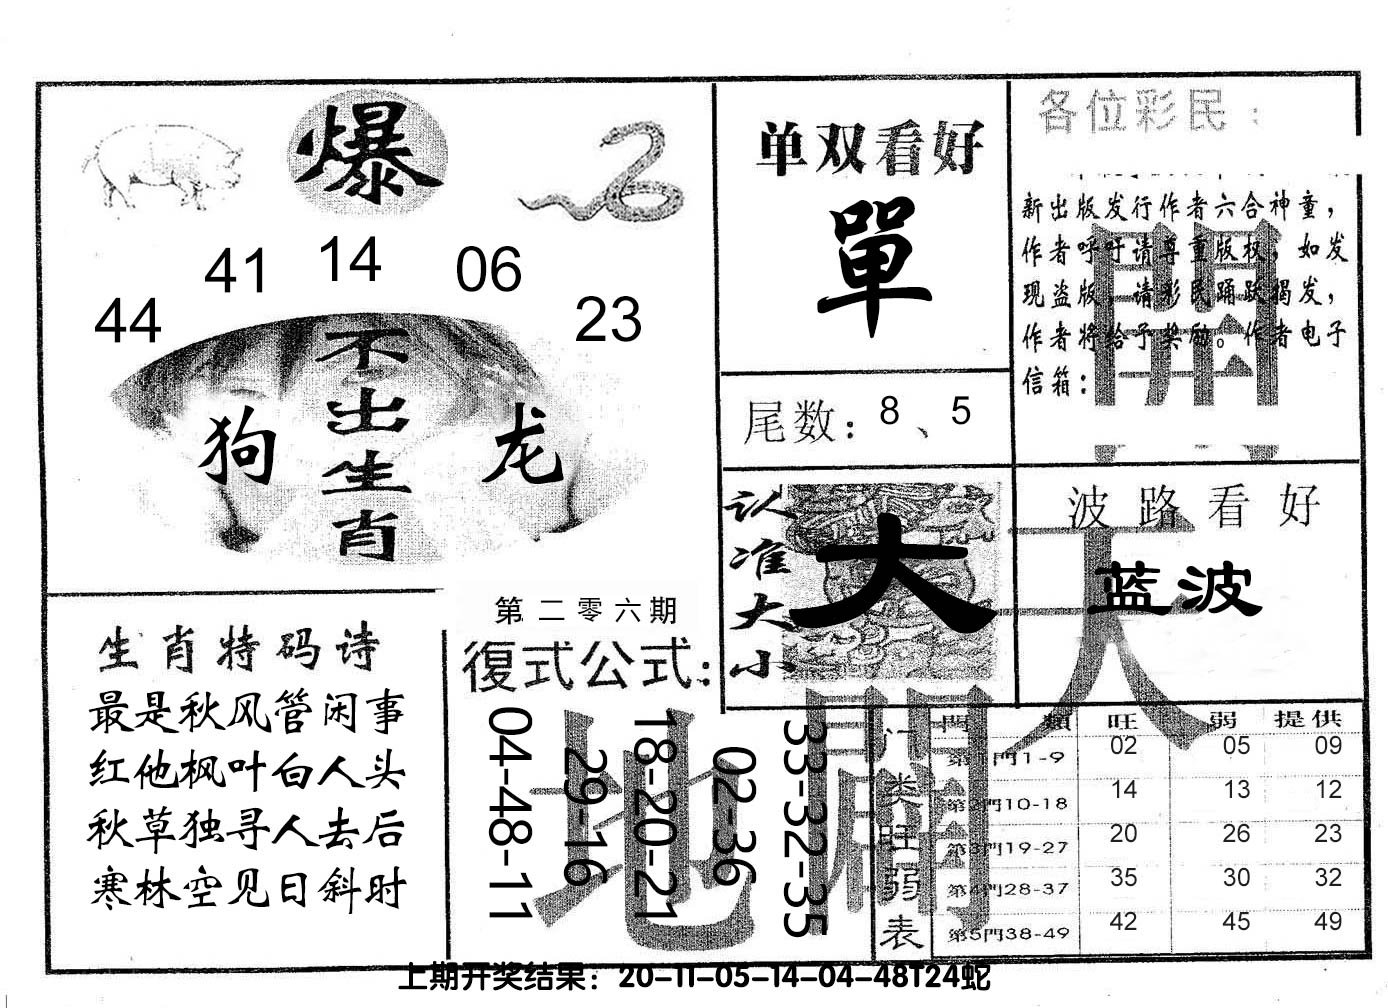 爆
44 41 14 06 23
不出生肖
狗
龙
单双看好
單
尾数：8、5
认准大小
大
各位彩民：
新出版发行作者六合神童，
作者呼吁请尊重版权，如发
现盗版，请彩民踊跃揭发，
作者将给予奖励。作者电子
信箱：
波路看好
蓝波
天
地
開
生肖特码诗
最是秋风管闲事
红他枫叶白人头
秋草独寻人去后
寒林空见日斜时
第二零六期
復式公式：
04-48-11
29-16
18-20-21
02-36
33-32-35
门类旺弱表
門類 旺 弱 提供
第1門1-9 02 05 09
第2門10-18 14 13 12
第3門19-27 20 26 23
第4門28-37 35 30 32
第5門38-49 42 45 49
上期开奖结果：20-11-05-14-04-48T24蛇